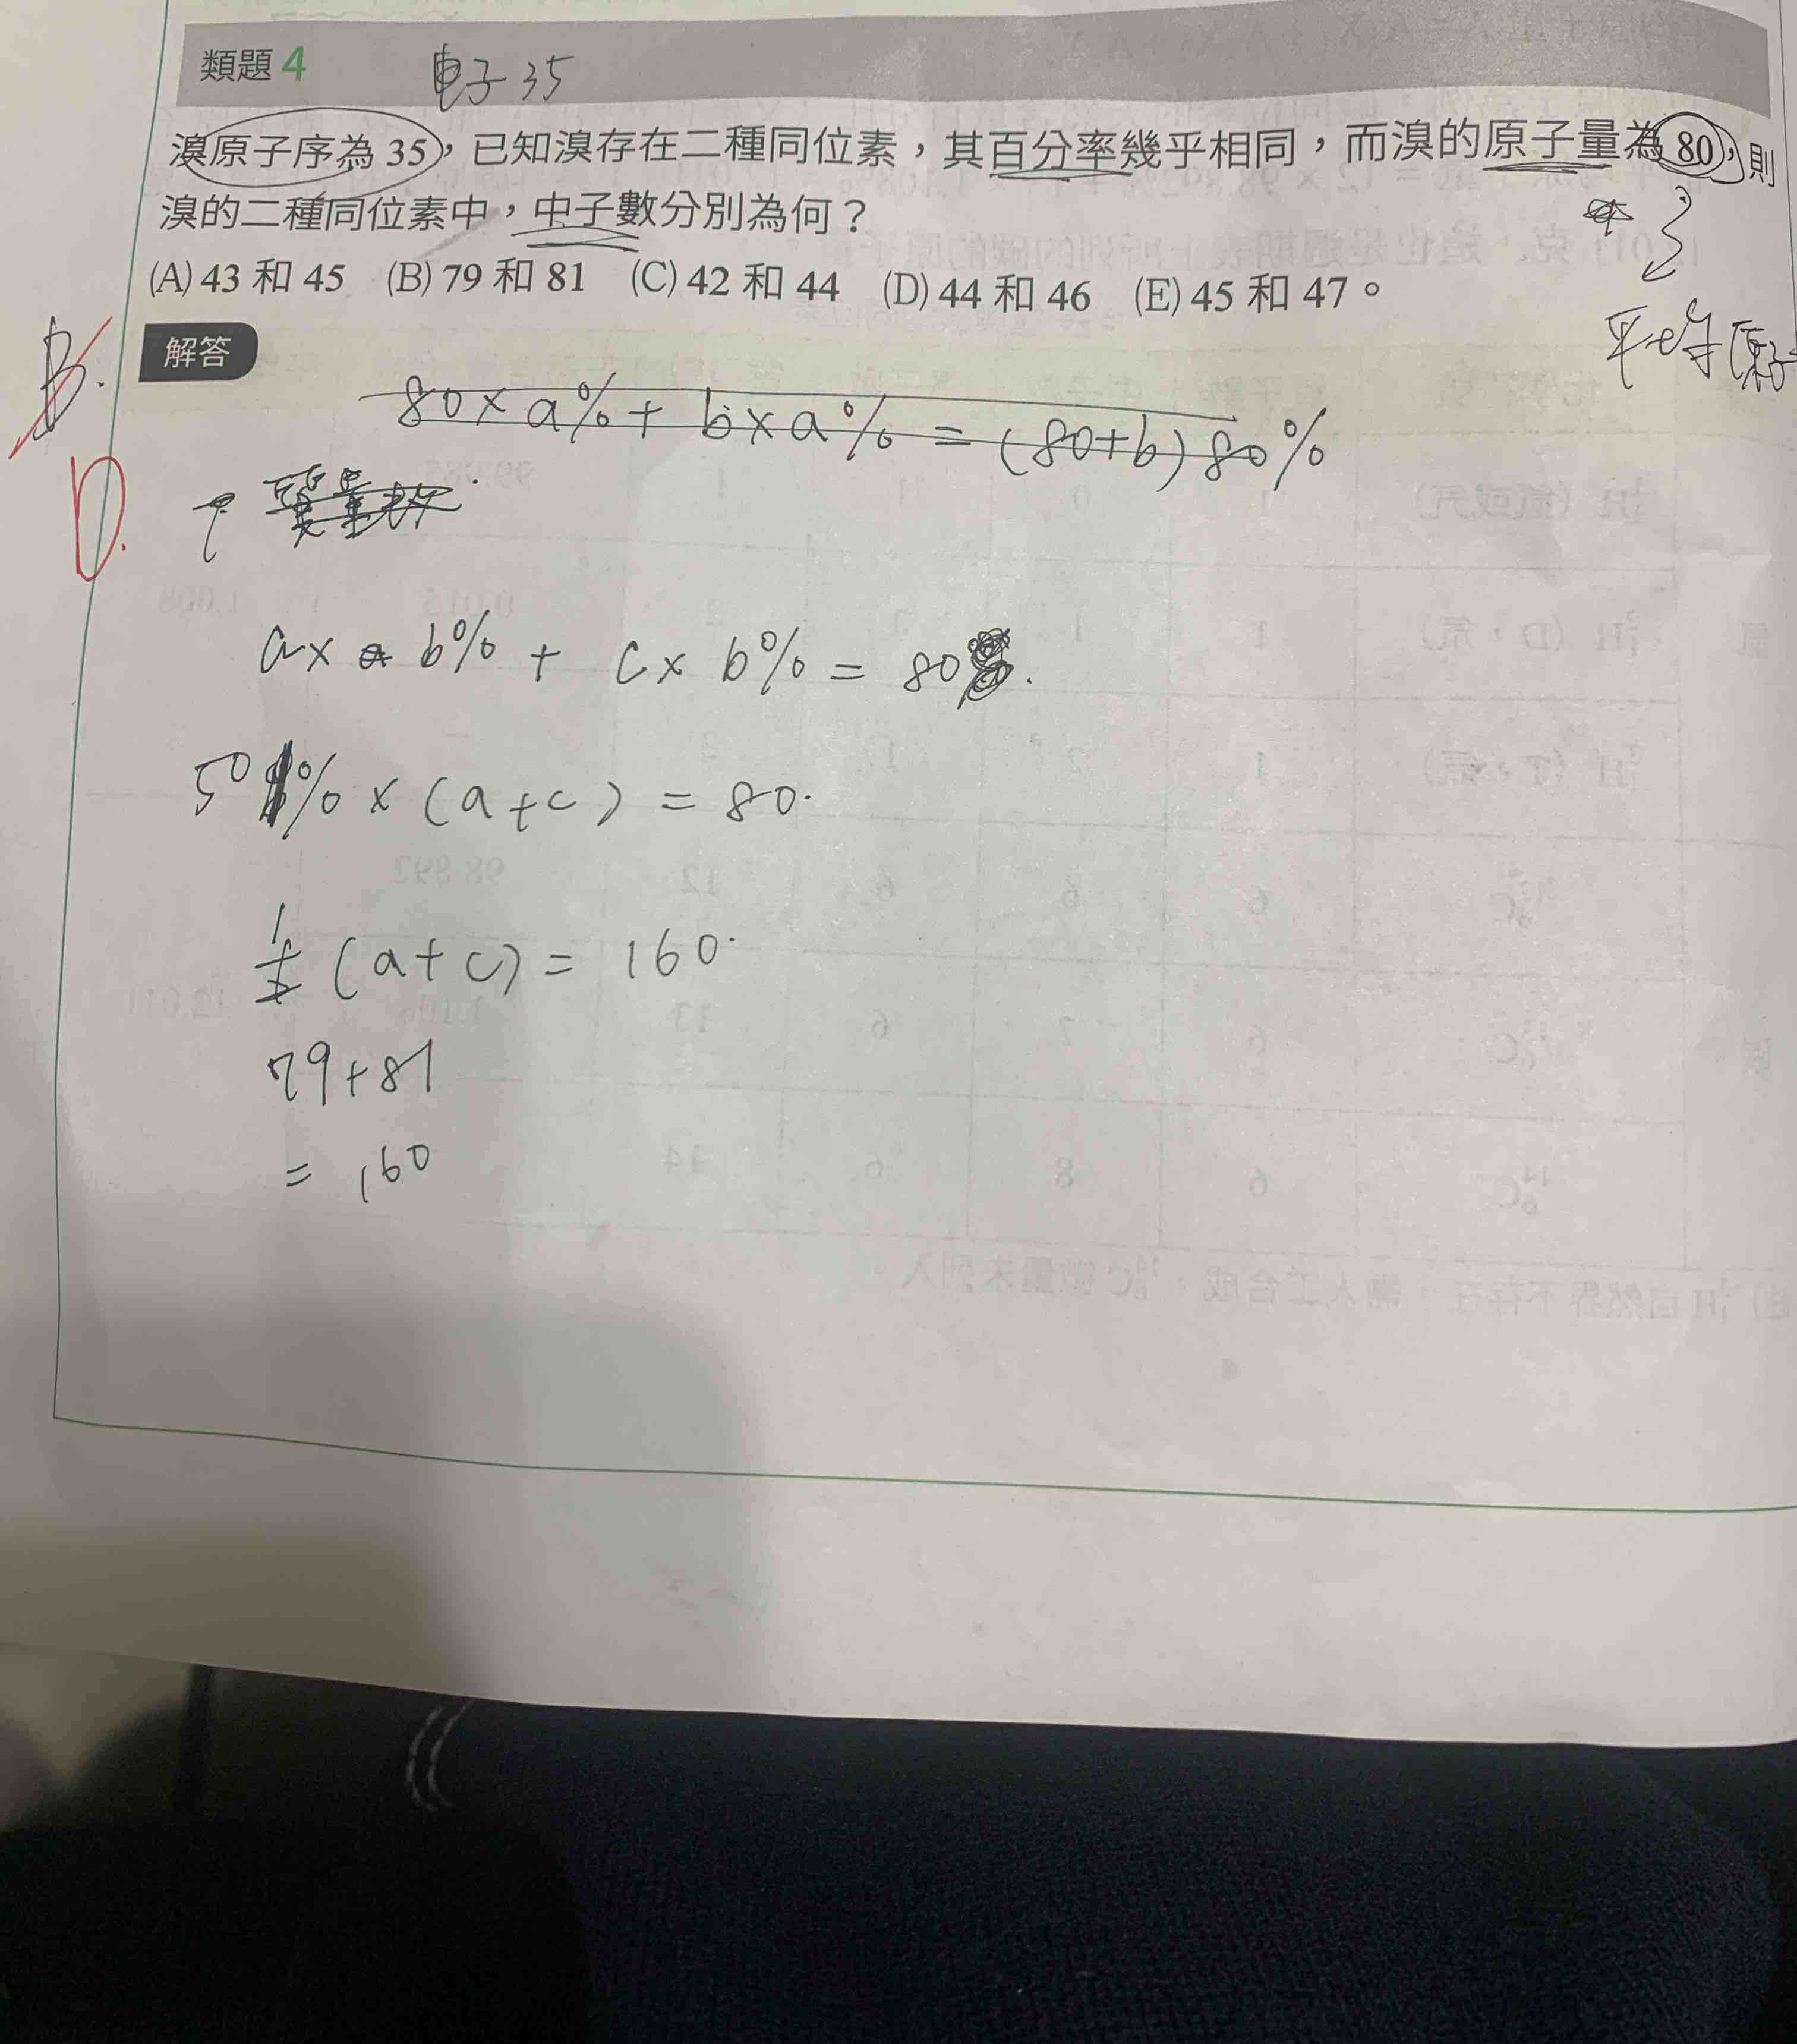 類題4 电子35
溴原子序為 35,已知溴存在二種同位素,其百分率幾乎相同,而溴的原子量為 80,則
溴的二種同位素中,中子數分別為何?
(A) 43 和 45 (B) 79 和 81 (C) 42 和 44 (D) 44 和 46 (E) 45 和 47。
平均原子
B.
解答
80×a%+b×a%=(80+b)80%
D.
a× b%+c×b%=80
50%×(a+c)=80.
(a+c)=160.
79+81
=160